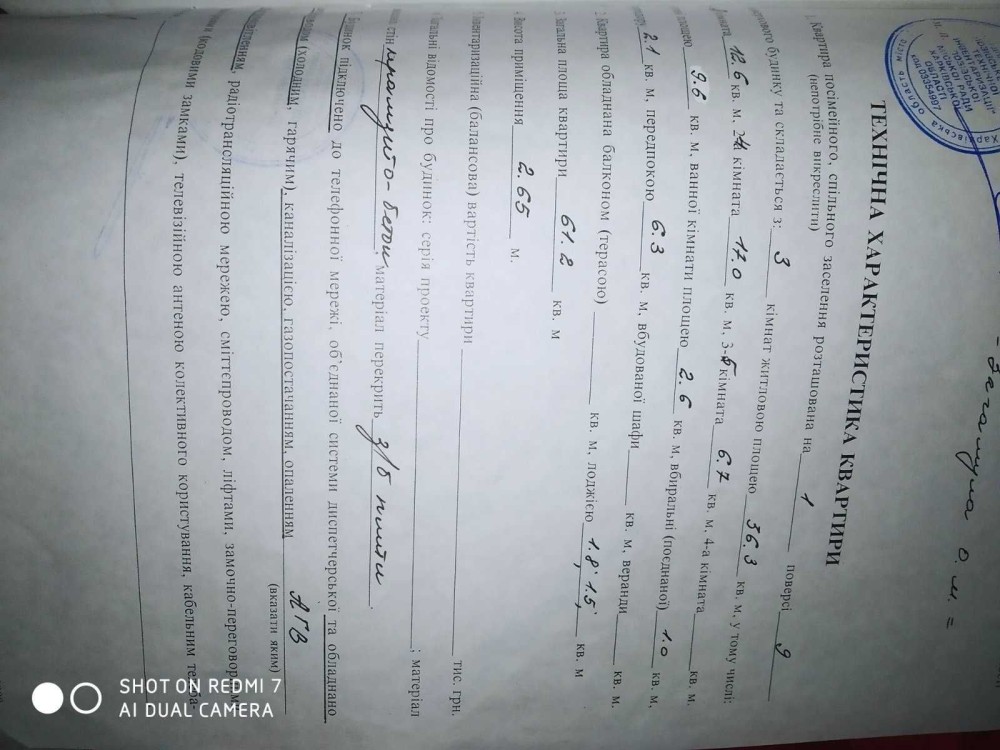 - Загальна о.м. =
Харківська область місто
ТЕХНІЧНА ХАРАКТЕРИСТИКА КВАРТИРИ
1. Квартира посімейного, спільного заселення розташована на 1 поверсі 9
(непотрібне викреслити)
будинку та складається з: 3 кімнат житловою площею 36.3 кв. м, у тому числі:
кімната 12.6 кв. м, 2-а кімната 17.0 кв. м, 3- кімната 6.7 кв. м, 4-а кімната кв. м.
площею 9.6 кв. м. ванної кімнати площею 2.6 кв. м, вбиральні (поєднаної) 1.0 кв. м,
2.1 кв. м, передпокою 6.3 кв. м, вбудованої шафи кв. м, веранди кв. м.
2. Квартира обладнана балконом (терасою) кв. м, лоджією 1.8; 1.5; кв. м
3. Загальна площа квартири 61.2 кв. м
4. Висота приміщення 2.65 м.
Інвентаризаційна (балансова) вартість квартири тис. грн.
відомості про будинок: серія проекту ; матеріал
стін керамзито-бетон. матеріал перекрить з/б плити.
підключено до телефонної мережі, об'єднаної системи диспетчерської та обладнано
(холодним, гарячим), каналізацією, газопостачанням, опаленням АГВ
(вказати яким)
радіотрансляційною мережею, сміттєпроводом, ліфтами, замочно-переговорним
(кодовими замками), телевізійною антеною колективного користування, кабельним
SHOT ON REDMI 7
AI DUAL CAMERA